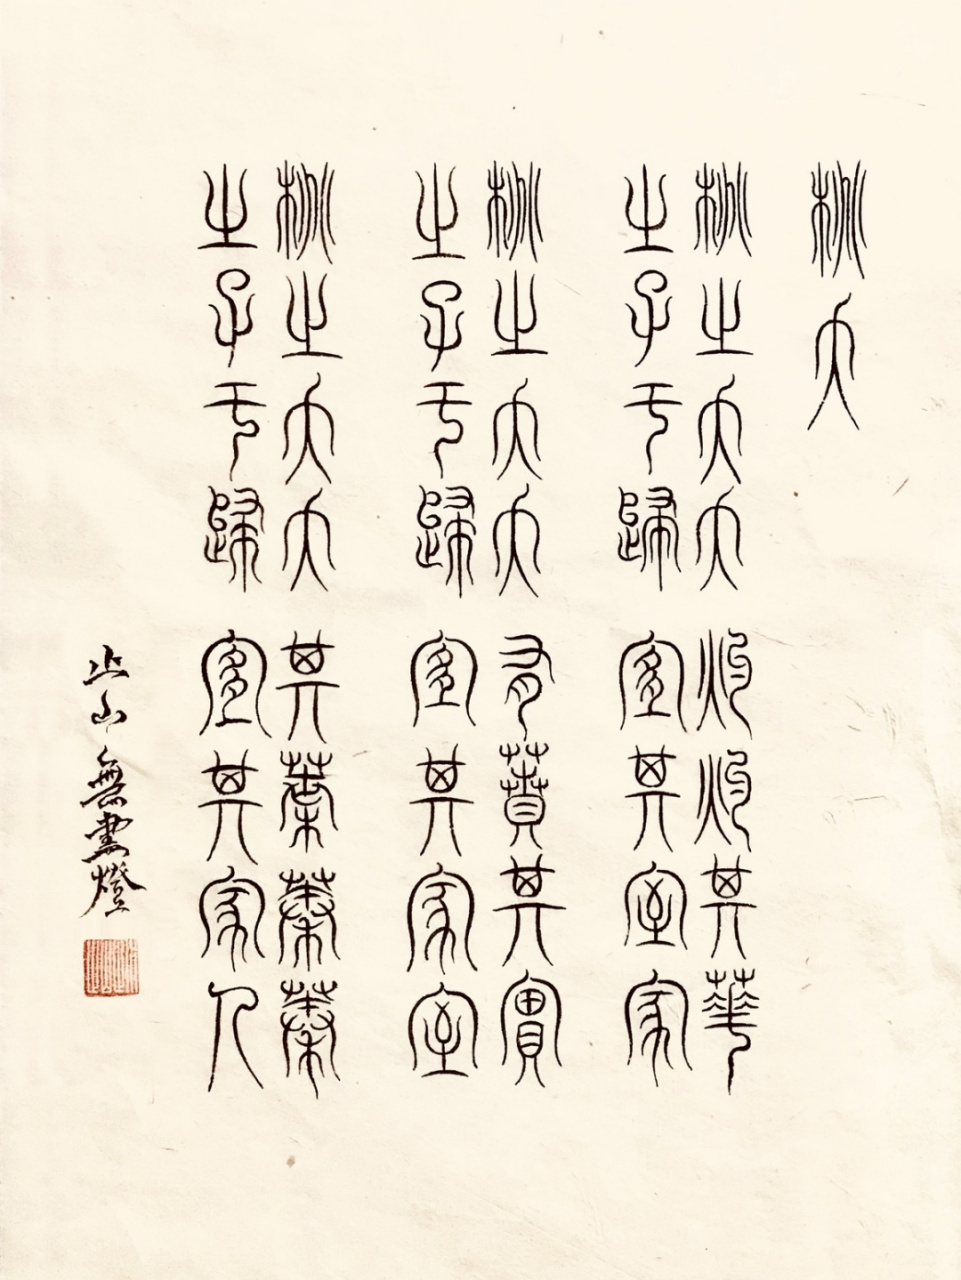 桃夭
桃之夭夭灼灼其華
之子于歸宜其室家
桃之夭夭有蕡其實
之子于歸宜其家室
桃之夭夭其葉蓁蓁
之子于歸宜其家人
止山無盡燈